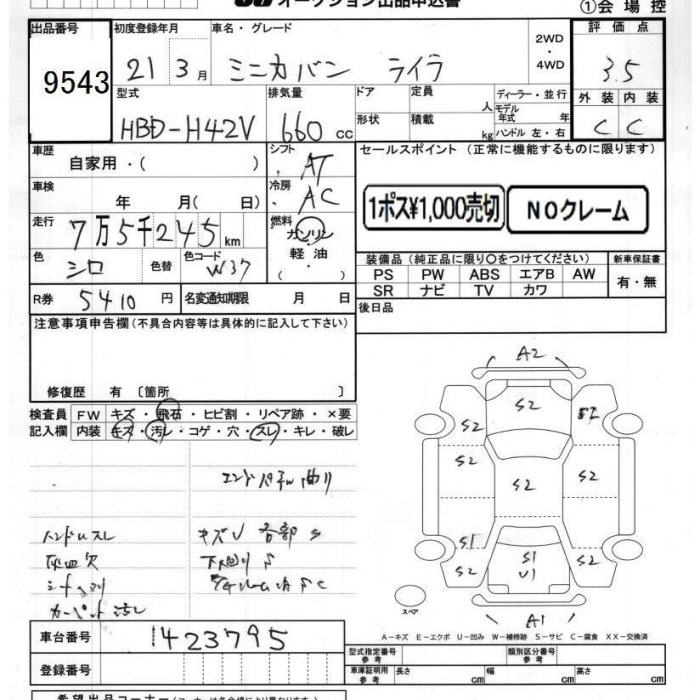 オークション出品申込書
①会場控
出品番号 初度登録年月 車名・グレード 2WD・4WD 評価点
9543 21 3月 ミニカバン ライラ 3.5
型式 排気量 ドア 定員 人 ディーラー・並行 外装 内装
HBD-H42V 660cc 形状 積載 kg モデル年式 年 ハンドル 左・右 C C
車歴 シフト セールスポイント (正常に機能するものに限ります)
自家用・( ) AT
車検 冷房
年 月( 日) AC
1ポス¥1,000売切 NOクレーム
走行 燃料
7万5千245km ガソリン
軽油
・( )
色 色替 色コード
シロ W37
装備品(純正品に限り〇をつけてください) 新車保証書
PS PW ABS エアB AW 有・無
SR ナビ TV カワ
R券 5410円 名変通知期限 月 日
後日品
注意事項申告欄(不具合内容等は具体的に記入して下さい)
修復歴 有 〔箇所 〕
検査員 FW キズ・飛石・ヒビ割・リペア跡・×要
記入欄 内装 キズ・汚レ・コゲ・穴・スレ・キレ・破レ
ハンドルスレ キズU 各部S
灰皿欠 下廻りS
カーペット汚レ
A2
S2
S2
S2
S2
S2
S2
S1
S2
S1
U1
S2
スペア
A1
A-キズ E-エクボ U-凹み W-補修跡 S-サビ C-腐食 XX-交換済
車台番号 1423795
型式指定番号 参考 類別区分番号 参考
登録番号 車庫証明用 参考 長さ cm 幅 cm 高さ cm
希望出品コーナー